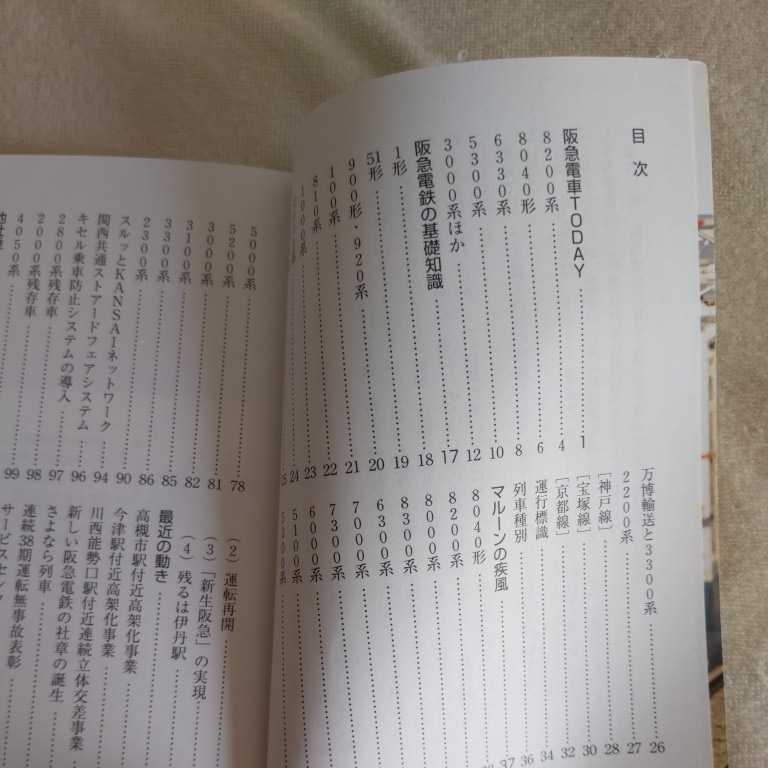 目次
阪急電車TODAY……1
8200系……4
8040形……6
6330系……8
5300系……10
3000系ほか……12
阪急電鉄の基礎知識……17
1形……18
51形……19
900形・920系……20
100系……21
810系……22
1000系……23
24
25
万博輸送と3300系……26
2200系……27
[神戸線]……28
[宝塚線]……30
[京都線]……32
運行標識……34
列車種別……36
マルーンの疾風……37
8040形……38
8200系
8000系
8300系
6300系
7300系
6000系
5100系
5300系
5000系……78
5200系……81
3000系……82
3100系……85
3300系……86
2300系……90
スルッとKANSAIネットワーク……94
関西共通ストアードフェアシステム……96
キセル乗車防止システムの導入……97
2800系残存車……98
2000系残存車……99
4050系
(2) 運転再開
(3) 「新生阪急」の実現
(4) 残るは伊丹駅
最近の動き
高槻市駅付近高架化事業
今津駅付近高架化事業
川西能勢口駅付近連続立体交差事業
新しい阪急電鉄の社章の誕生
さよなら列車
連続38期運転無事故表彰
サービスセンタ